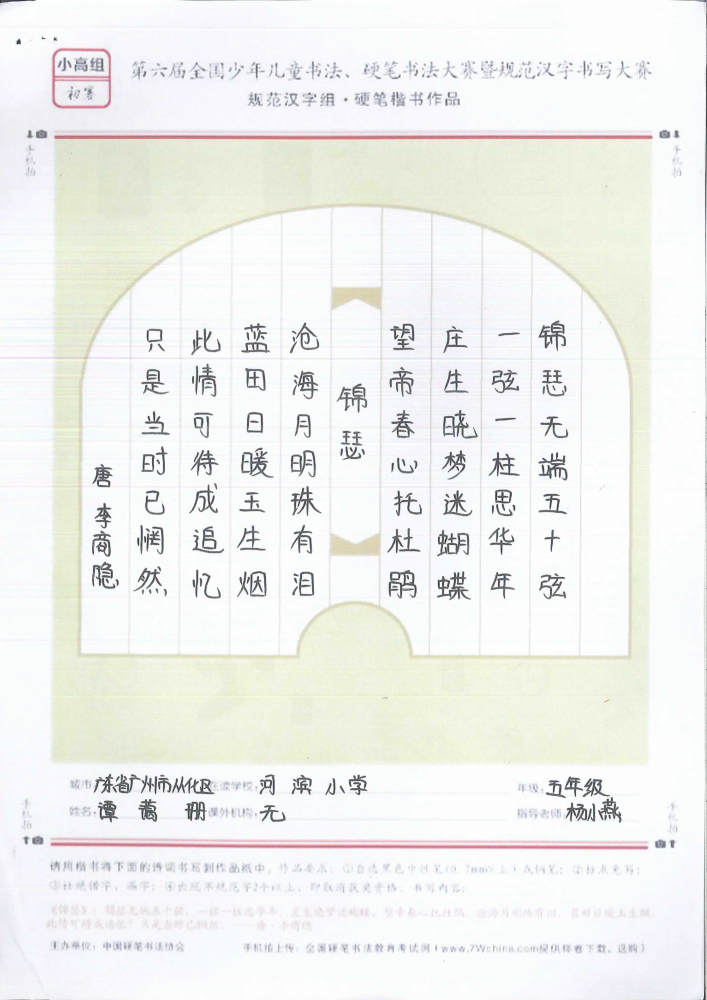 小高组
初赛
第六届全国少年儿童书法、硬笔书法大赛暨规范汉字书写大赛
规范汉字组·硬笔楷书作品
手机拍
手机拍
锦瑟无端五十弦
一弦一柱思华年
庄生晓梦迷蝴蝶
望帝春心托杜鹃
锦瑟
沧海月明珠有泪
蓝田日暖玉生烟
此情可待成追忆
只是当时已惘然
唐李商隐
城市：广东省广州市从化区 在读学校：河滨小学 年级：五年级
姓名：谭蔼珊 课外机构：无 指导老师：杨小燕
手机拍
手机拍
请用楷书将下面的诗词书写到作品纸中。作品要求：①自选黑色中性笔(0.7mm以上)或钢笔；②标点免写；
③杜绝错字、漏字；④出现不规范字2个以上，即取消获奖资格。书写内容：
《锦瑟》：锦瑟无端五十弦，一弦一柱思华年。庄生晓梦迷蝴蝶，望帝春心托杜鹃。沧海月明珠有泪，蓝田日暖玉生烟。
此情可待成追忆？只是当时已惘然。——唐·李商隐
主办单位：中国硬笔书法协会 手机拍上传：全国硬笔书法教育考试网（www.7Wchina.com提供样卷下载、选购）